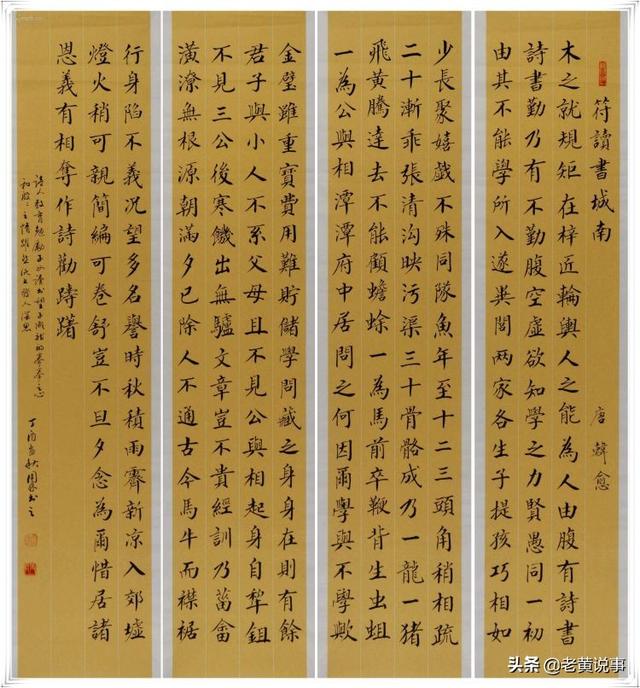 符讀書城南 唐 韓愈
木之就規矩在梓匠輪輿人之能為人由腹有詩書
詩書勤乃有不勤腹空虛欲知學之力賢愚同一初
由其不能學所入遂異閭兩家各生子提孩巧相如
少長聚嬉戲不殊同隊魚年至十二三頭角稍相疏
二十漸乖張清溝映污渠三十骨骼成乃一龍一猪
飛黃騰達去不能顧蟾蜍一為馬前卒鞭背生虫蛆
一為公與相潭潭府中居問之何因爾學與不學歟
金璧雖重寶費用難貯儲學問藏之身身在則有餘
君子與小人不系父母且不見公與相起身自犁鉏
不見三公後寒饑出無驢文章豈不貴經訓乃菑畬
潢潦無根源朝滿夕已除人不通古今馬牛而襟裾
行身陷不義況望多名譽時秋積雨霽新涼入郊墟
燈火稍可親簡編可卷舒豈不旦夕念為爾惜居諸
恩義有相奪作詩勸躊躇
詩人教育勉勵子女讀書望子成龍的拳拳之心
和殷殷之情躍然紙上發人深思
丁酉 秋周 書之
头条 @老黄说事